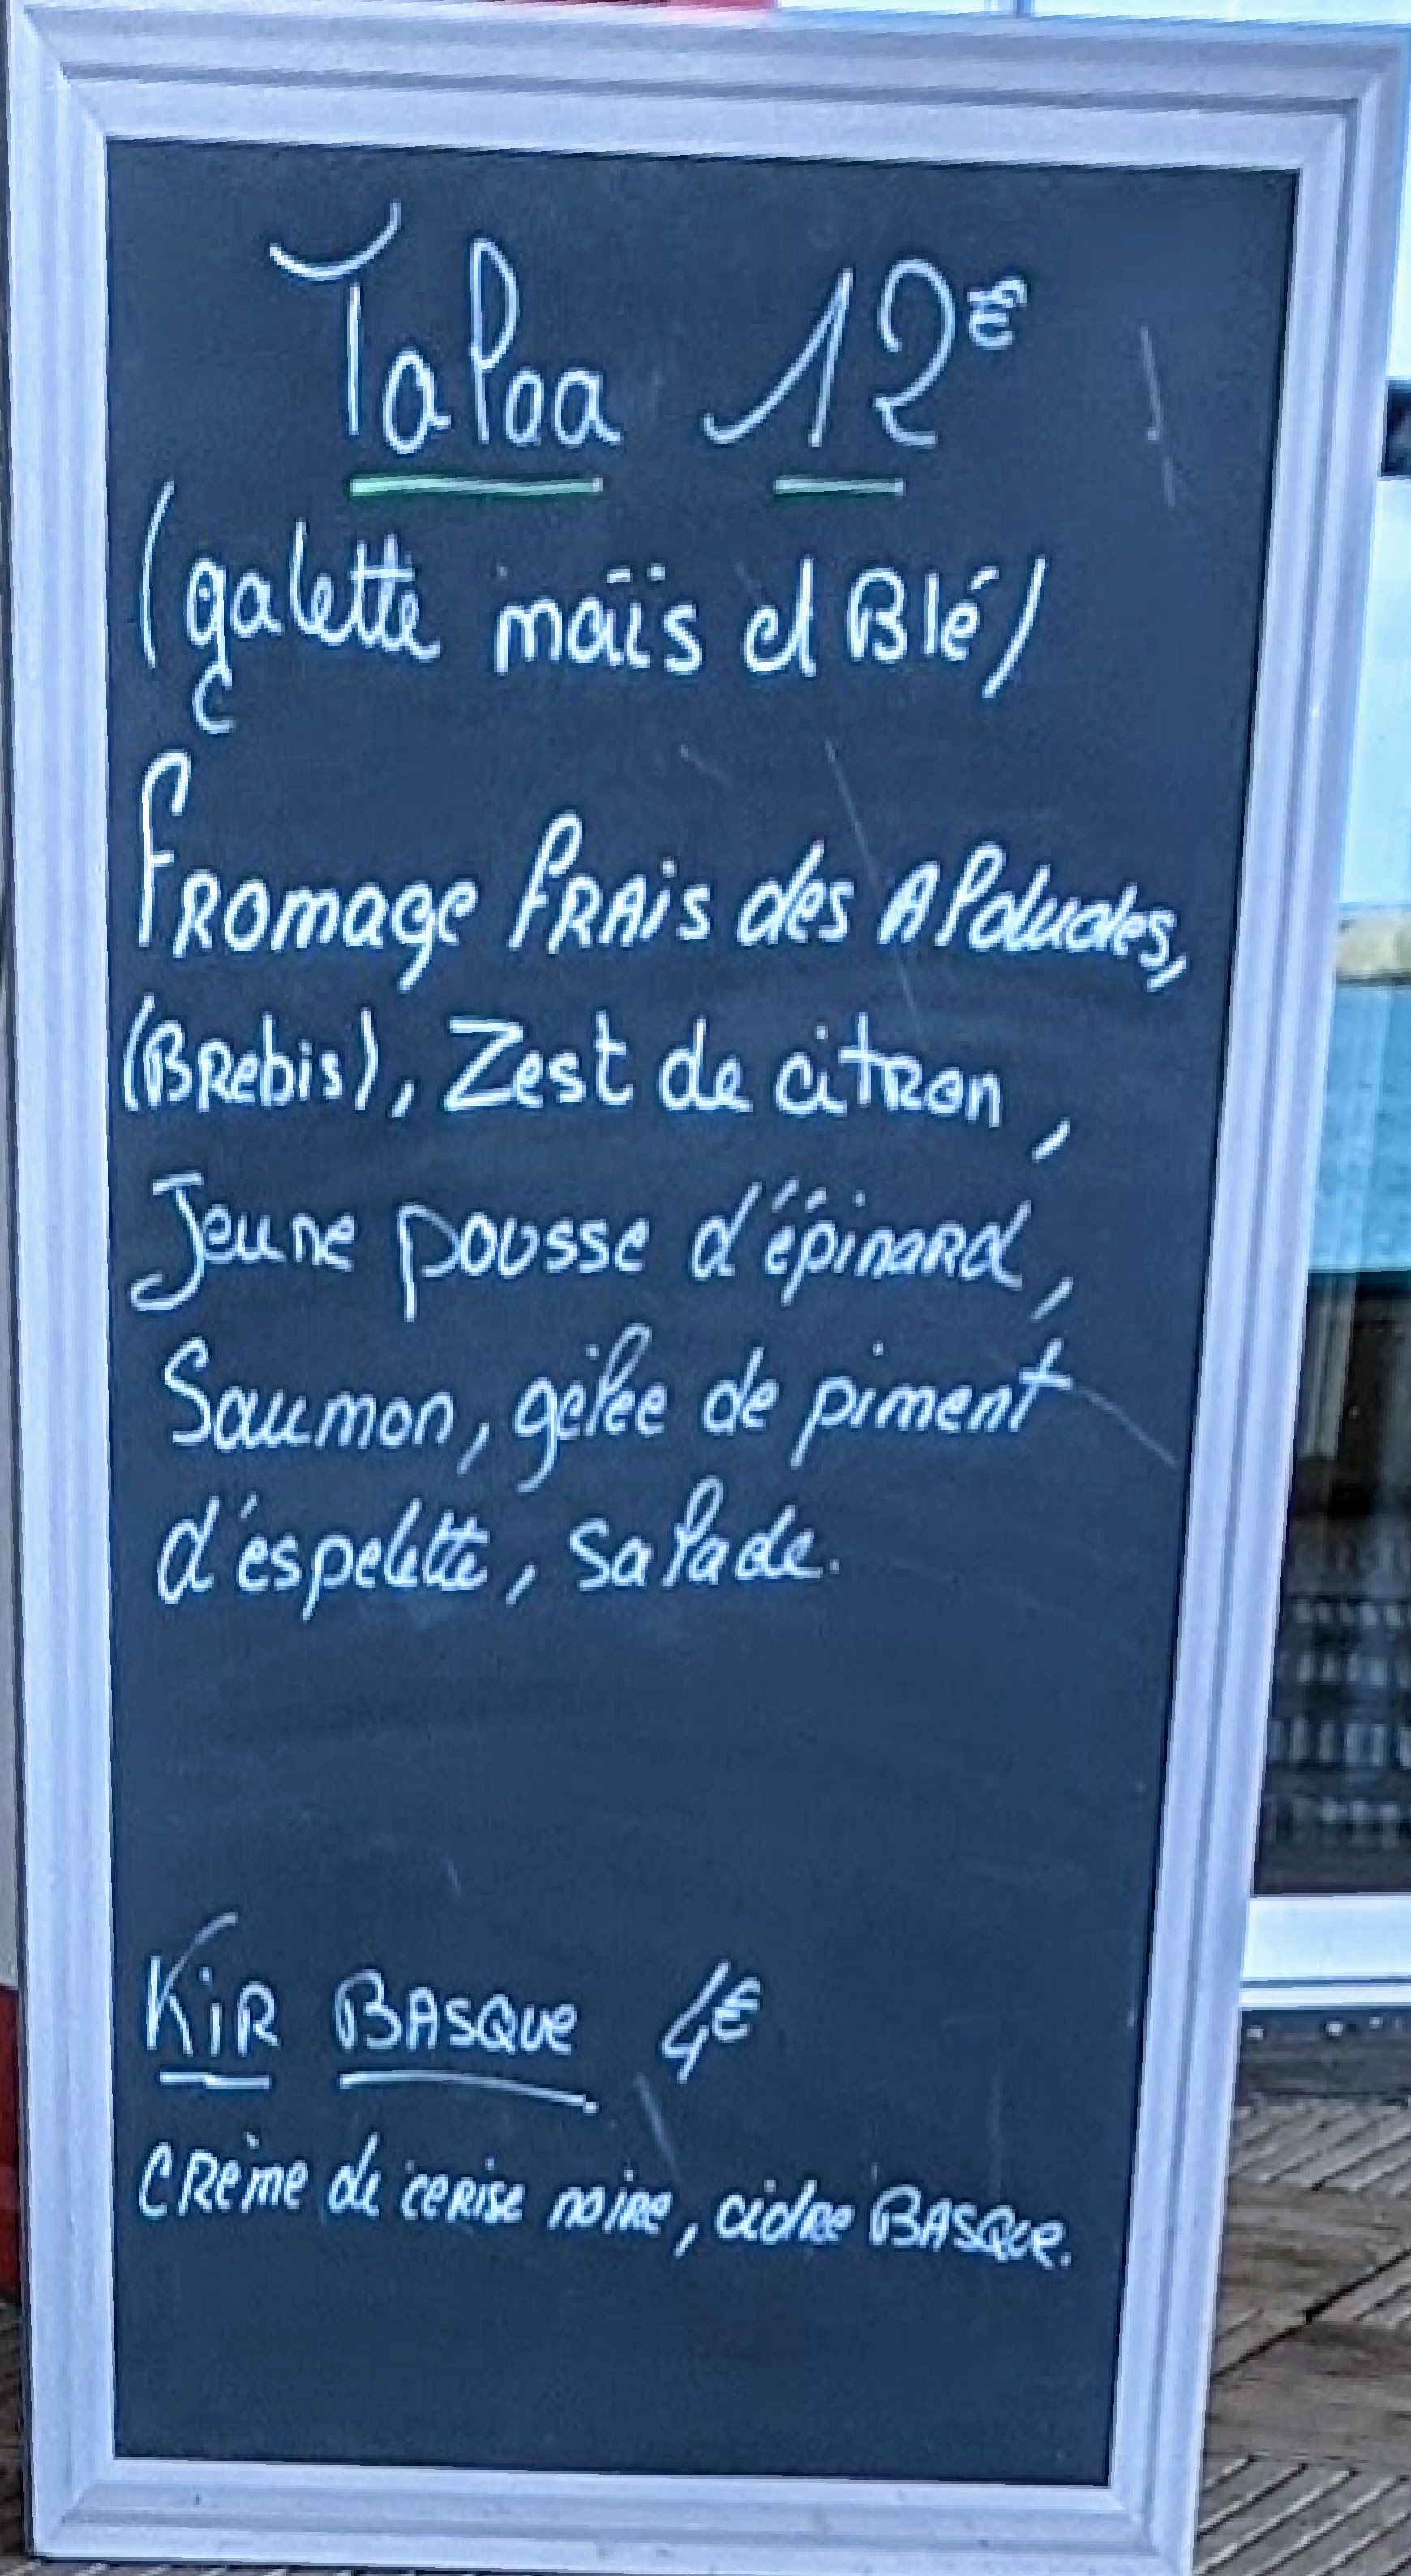 Taloa 12€
(galette maïs et Blé)
Fromage frais des Aldudes,
(Brebis), Zest de citron,
Jeune pousse d'épinard,
Saumon, gelée de piment
d'espelette, salade.
Kir BASQUE 4€
Crème de cerise noire, cidre BASQUE.